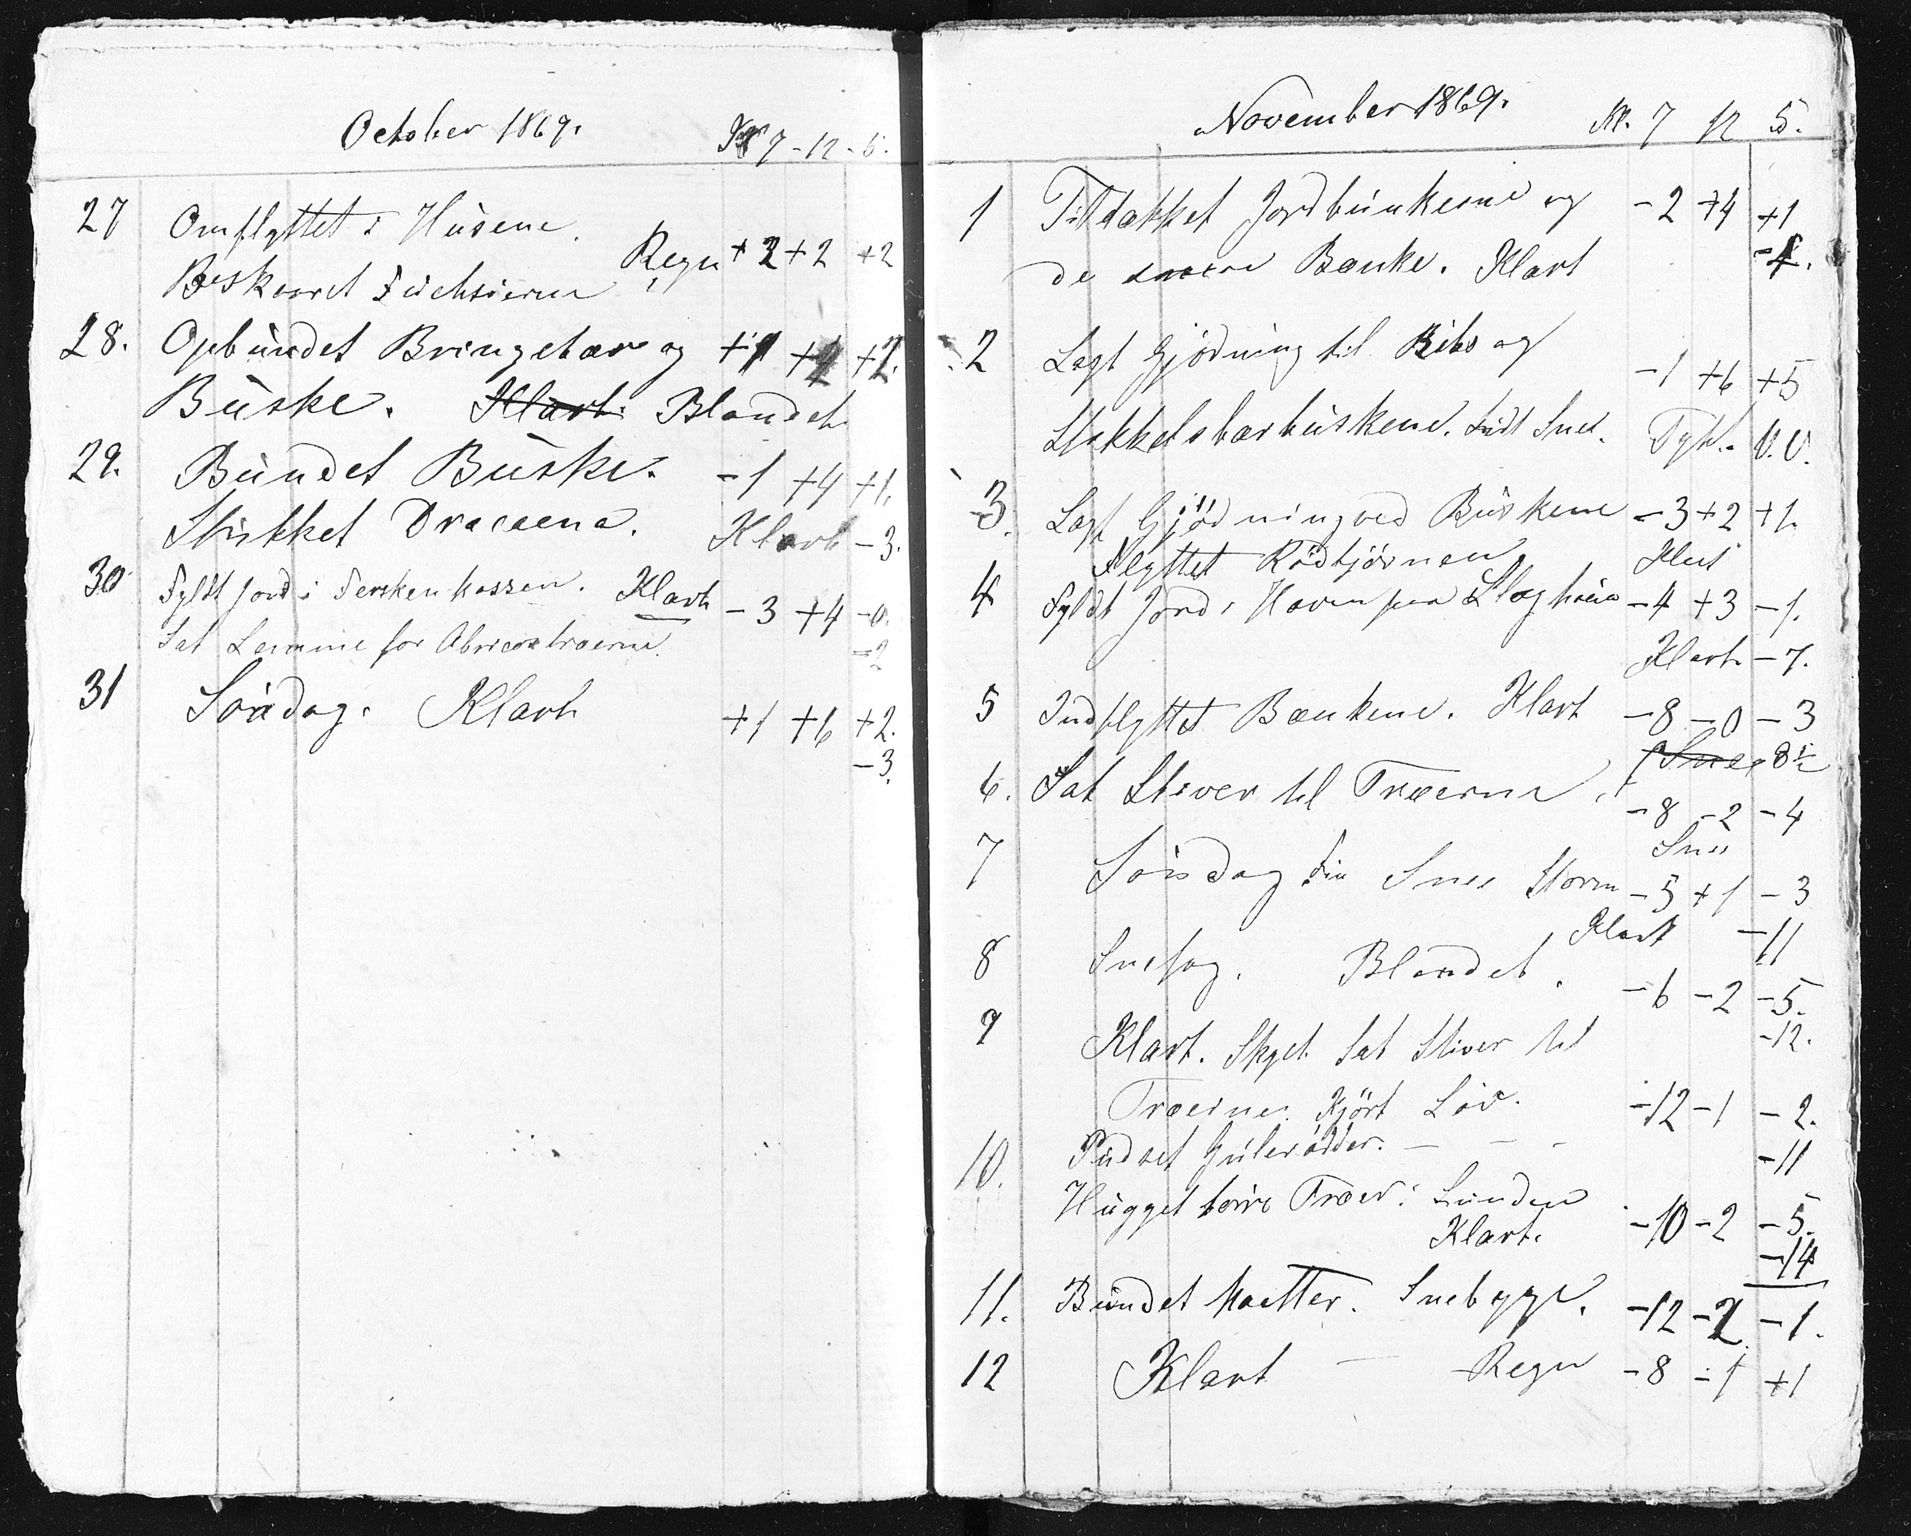 October 1869. Kl 7 - 12 - 5.
27 Omflyttet i Husene.
Beskaaret Fuchsierne Regn +2 +2 +2
28. Opbundet Bringebær og +1 +2 +2.
Buske. Klart. Blandet.
29. Bundet Buske. -1 +4 +1.
Stikket Dracaena. Klart -3.
30 Fyldt Jord i Ferskenkassen. Klart -3 +4 -0.
Sat Lemme for Abricostræerne. -2
31 Søndag. Klart +1 +6 +2.
-3.
November 1869. Kl. 7 12 5.
1 Tildækket Jordbunkerne og -2 +4 +1
de Bænke. Klart -4.
2 Lagt Gjødning til Ribs og -1 +6 +5
Stikkelsbærbuskene. Lidt Snee. Tykt. V.V.
3. Lagt Gjødning ved Buskene -3 +2 +1.
Flyttet Rødtjørnen
4 Fyldt Jord i Haven paa -4 +3 -1.
Klart. -7.
5 Indflyttet Bænkene. Klart -8 -0 -3
Snee 8½
6. Sat Stiver til Træerne. -8 -2 -4
Snee
7 Søndag Fin Snee Storm -5 +1 -3
Klart -11
8 Snefog. Blandet. -6 -2 -5.
-12.
9 Klart. Skyet. Sat Stiver til
Træerne. Kjørt Løv. -12 -1 -2.
10. Pudset Gulerødder. - - - -11
Hugget tørre Træer i Lunden
Klart. -10 -2 -5.
-14
11. Bundet Maatter. Snebyge. -12 -2 -1.
12 Klart — Regn -8 -1 +1